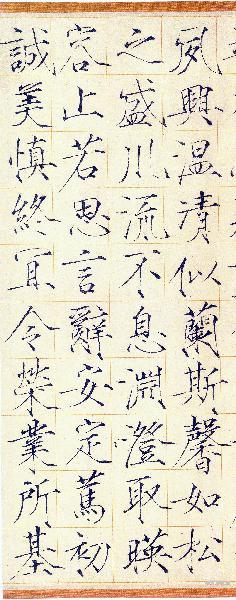 夙興温凊似蘭斯馨如松
之盛川流不息淵澄取暎
容止若思言辭安定篤初
誠美慎終宜令榮業所基